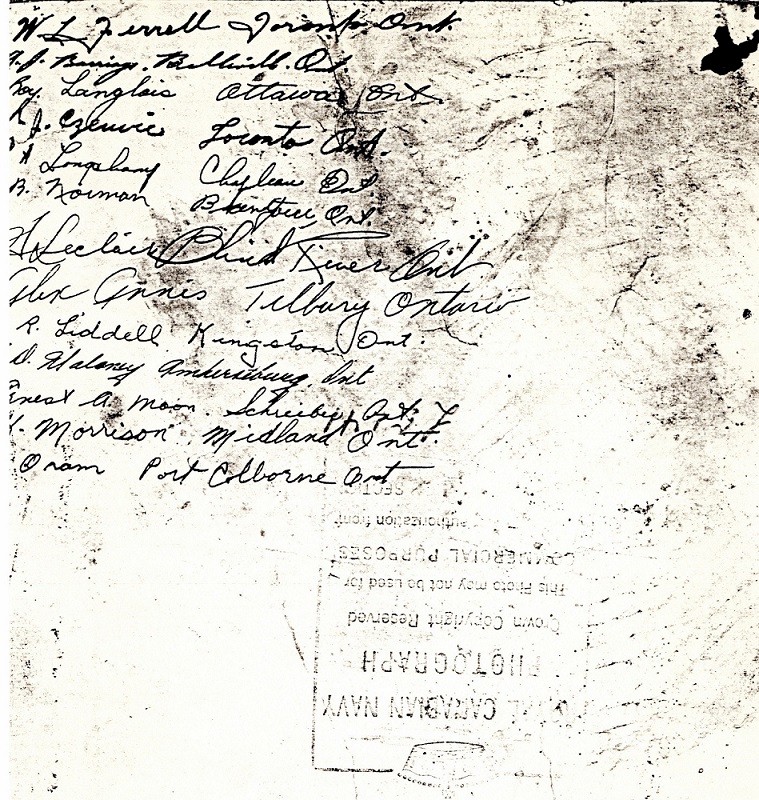 W L Ferrell Toronto Ont.
Belleville. Ont
Roy. Langlois Ottawa Ont.
J. Czerwic Toronto Ont.
Longphany Chapleau Ont
B. Norman Ont
Leclair Blind River Ont
Alex Annis Tilbury Ontario
R. Liddell Kingston Ont.
D. Maloney Amherstburg. Ont
Ernest A. Moon. Schreiber, Ont.
Morrison, Midland Ont.
Oram Port Colborne Ont
SECTION
authorization from
COMMERCIAL PURPOSES
This Photo may not be used for
Crown Copyright Reserved
PHOTOGRAPH
ROYAL CANADIAN NAVY